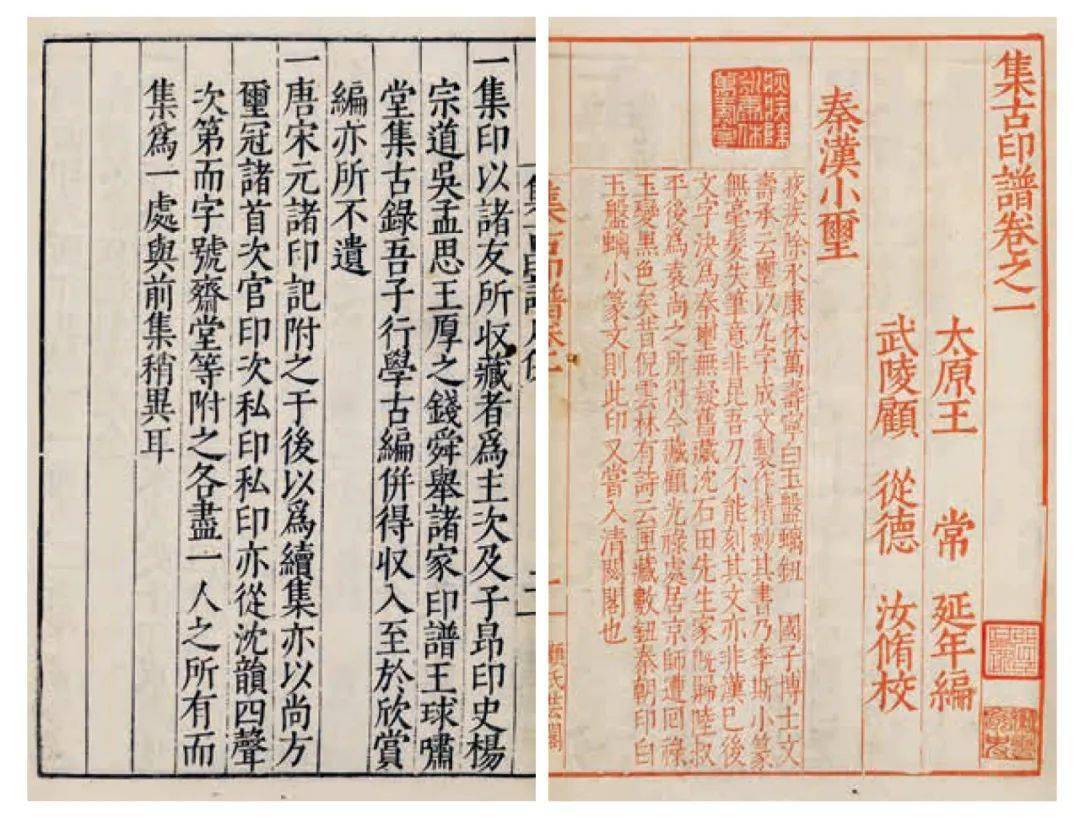 集古印譜卷之一
太原王 常 延年編
武陵顧 從德 汝脩校
秦漢小璽
疢疾除永康休萬壽寧
疢疾除永康休萬壽寧白玉盤螭鈕 國子博士文
壽承云璽以九字成文製作精妙其書乃李斯小篆
無毫髮失筆意非昆吾刀不能刻其文亦非漢已後
文字決爲秦璽無疑舊藏沈石田先生家既歸陸叔
平後爲袁尚之所得今藏顧光祿處居京師遭回祿
玉變黑色矣昔倪雲林有詩云匣藏數鈕秦朝印白
玉盤螭小篆文則此印又嘗入清閟閣也
顧氏芸閣
一集印以諸友所收藏者爲主次及子昂印史楊
宗道吳孟思王厚之錢舜舉諸家印譜王球嘯
堂集古錄吾子行學古編併得収入至於欣賞
編亦所不遺
一唐宋元諸印記附之于後以爲續集亦以尚方
璽冠諸首次官印次私印私印亦從沈韻四聲
次第而字號齋堂等附之各盡一人之所有而
集爲一處與前集稍異耳